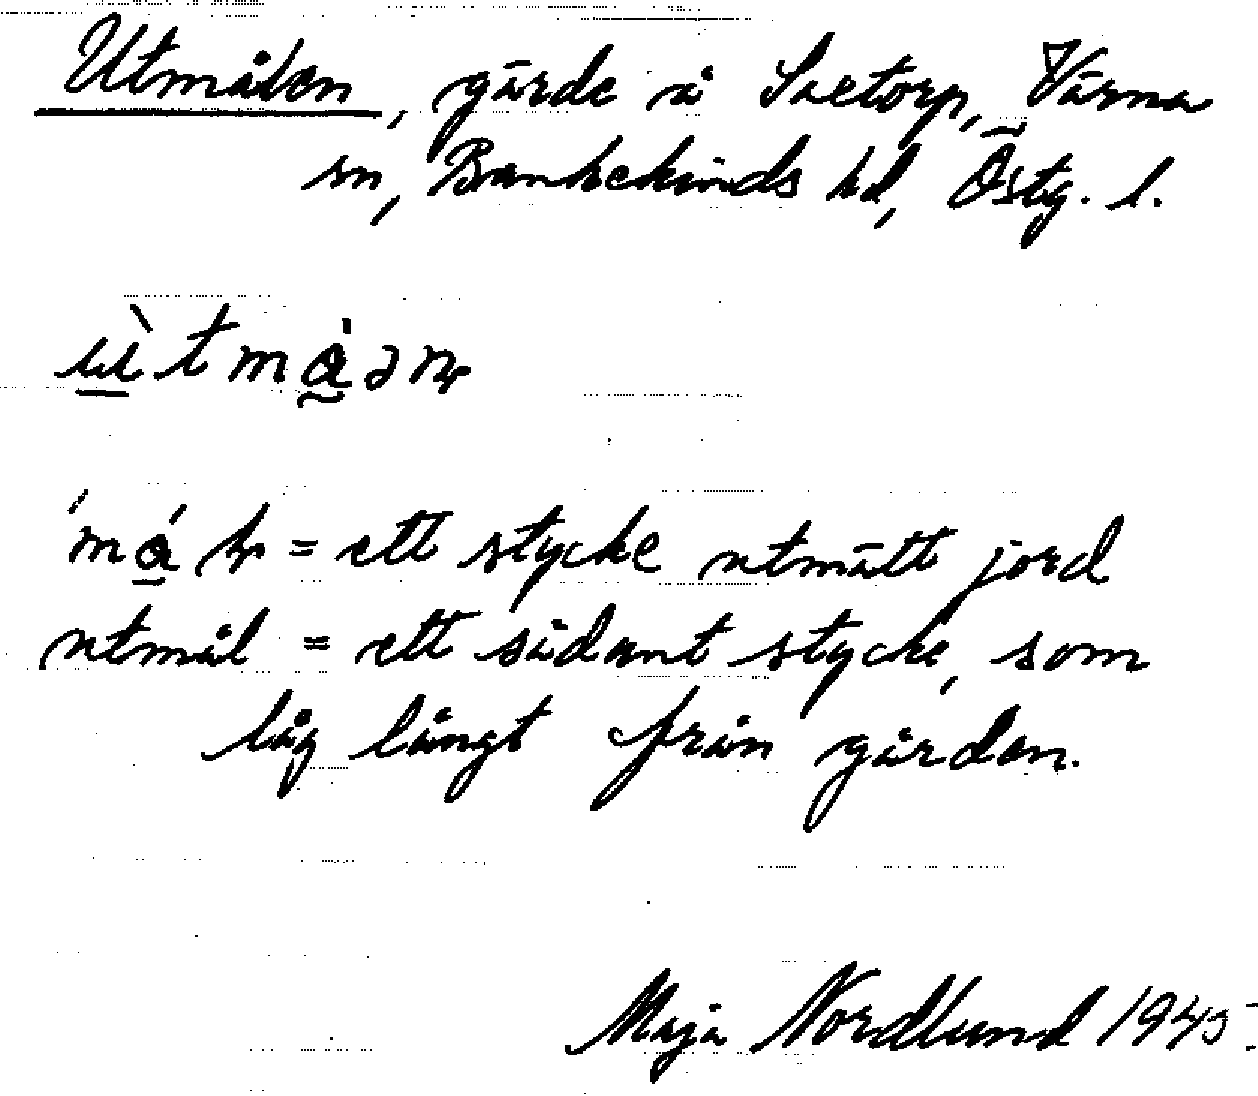 Utmålen, gärde å Saetorp, Värna
sn, Bankekinds hd, Östg. l.
ùtmå̀ən
'mǻḷ = ett stycke utmätt jord
utmål = ett sådant stycke, som
låg långt från gården.
Maja Nordlund 1945